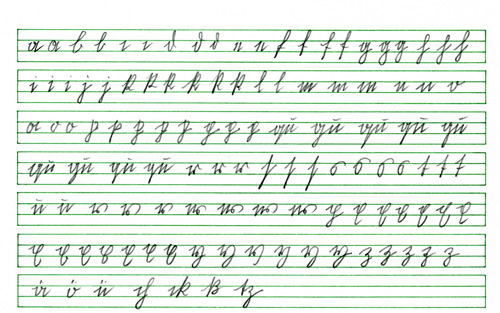 a a b b c c d d d e e f f f f g g g h h h
i i i j j k k k k k k l l m m m n n o
o o o p p p p p q q q qu qu qu qu qu
qu qu qu qu r r r ſ ſ ſ s s s s t t t
u u v v v w w w w x x x x x x x
x x x x x x x y y y y y y z z z z z
ä ö ü ch ck ß tz